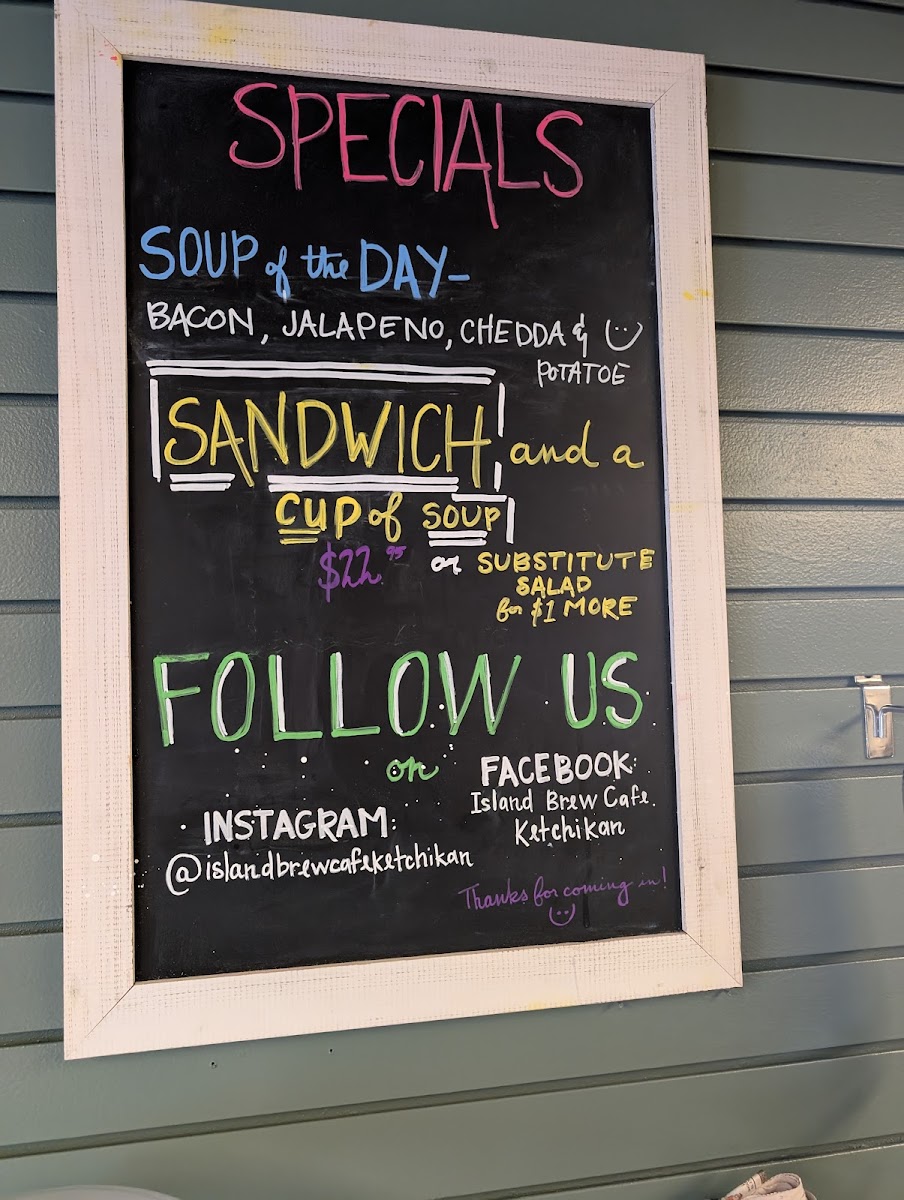 SPECIALS
SOUP of the DAY-
BACON, JALAPENO, CHEDDA &
POTATOE
SANDWICH and a
CUP of SOUP
$22.95 or SUBSTITUTE
SALAD
for $1 MORE
FOLLOW US
on
FACEBOOK:
Island Brew Cafe.
Ketchikan
INSTAGRAM:
@islandbrewcafeketchikan
Thanks for coming in!